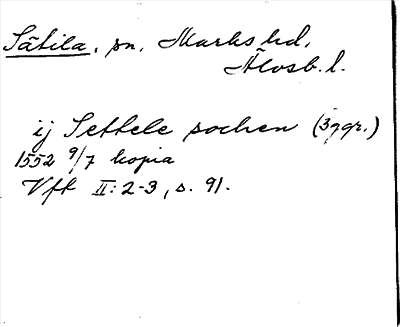 Sätila, sn, Marks hd,
Älvsb. l.
ij Settele sochen (3 ggr.)
1552 9/7 kopia
Vft II: 2-3, s. 91.